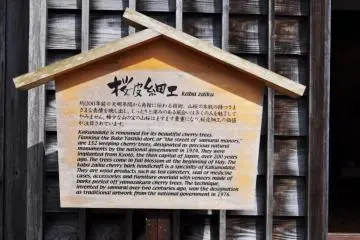 桜皮細工
kaba zaiku
約200年前の天明年間から角館に伝わる技術。山桜の木肌の持つさま
Kakunodate is renowned for its beautiful cherry trees.
Flanking the Buke Yashiki Dori, or "the street of samurai manors,"
are 152 weeping cherry trees, designated as precious natural
monuments by the national government in 1974. They were
implanted from Kyoto, the then capital of Japan, over 200 years
ago. The trees come in full blossom at the beginning of May. The
kaba zaiku cherry bark handicraft is a specialty of Kakunodate.
They are wood products such as tea canisters, seal or medicine
cases, accessories and furniture overlaid with veneers made of
barks peeled off yamazakura cherry trees. The technique,
invented by samurai over two centuries ago, won the designation
as traditional artwork from the national government in 1976.